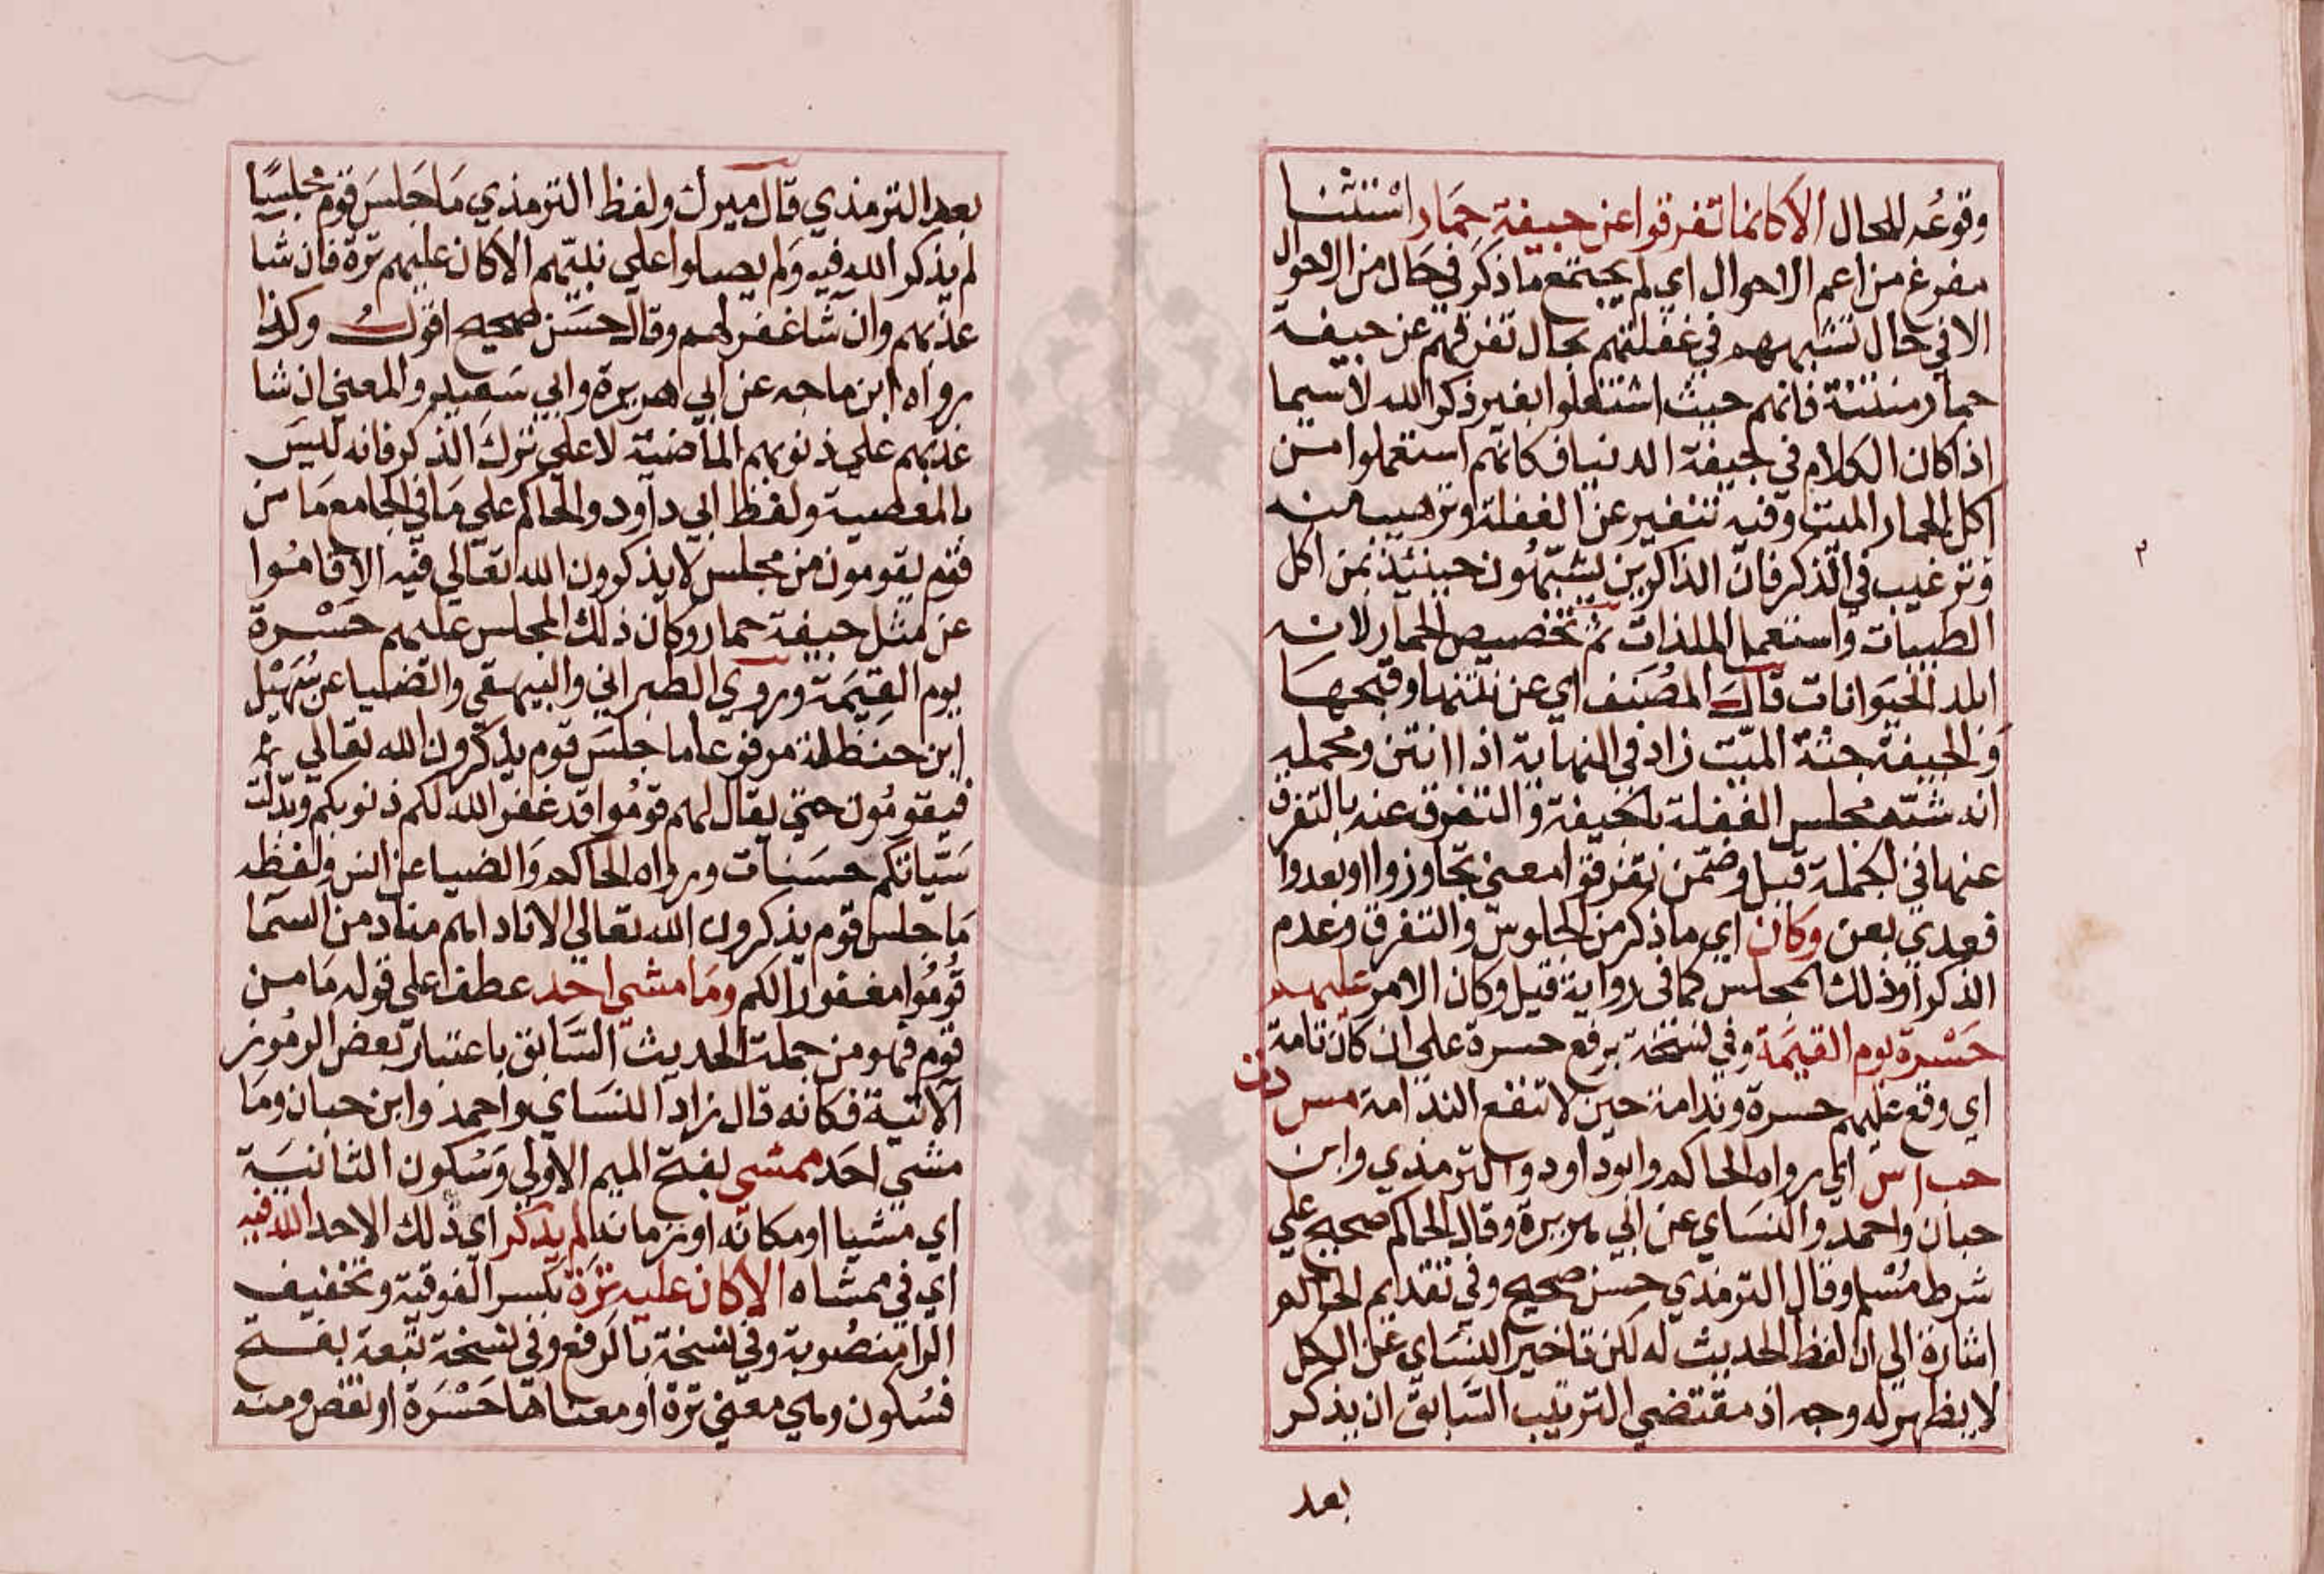 وقوعه للمحال الا كانما تفرقوا عن جيفة حمار استثنا
مفرغ من اعم الاحوال اي لم يجتمع ما ذكر في حال من الاحوال
الا في حال تشبيههم في غفلتهم بحال تفرقهم عن جيفة
حمار منتنة فانهم حيث اشتغلوا بغير ذكر الله لا سيما
اذا كان الكلام في جيفة الدنيا فكانهم استعملوا من
اكل الحمار الميت وفيه تنفير عن الغفلة وترهيب منه
وترغيب في الذكر فان الذاكرين يشبهون حينئذ بمن اكل
الطيبات واستعمل الملذات ثم تخصيص الحمار لانه
ابلد الحيوانات قال المصنف اي عن نتنها وقبحها
والجيفة جثة الميت زاد في النهاية اذا انتن ومحمله
انه شبه مجلس الغفلة بالجيفة والتفرق عنه بالتفرق
عنها في الجملة قيل وضمن تفرقوا معنى تجاوزوا او بعدوا
فعدي بعن وكان اي ما ذكر من الجلوس والتفرق وعدم
الذكر او ذلك المجلس كما في رواية قيل وكان الامر عليهم
حسرة يوم القيمة وفي نسخة برفع حسرة على ان كان تامة
اي وقع عليهم حسرة وندامة حين لا تنفع الندامة مس دت
حب اس اي رواه الحاكم وابو داود والترمذي وابن
حبان واحمد والنساي عن ابي هريرة وقال الحاكم صحيح علي
شرط مسلم وقال الترمذي حسن صحيح وفي تقديم الحاكم
اشارة الي ان لفظ الحديث له لكن تاخير النساي عن الكل
لا يظهر له وجه اذ مقتضي الترتيب السابق ان يذكر
بعد
بعد الترمذي قال ميرك ولفظ الترمذي ما جلس قوم مجلسا
لم يذكر الله فيه ولم يصلوا علي نبيهم الا كان عليهم ترة فان شا
عذبهم وان شا غفر لهم وقال حسن صحيح اقول وكذا
رواه ابن ماجه عن ابي هريرة وابي سعيد والمعني ان شا
عذبهم علي ذنوبهم الماضية لا علي ترك الذكر فانه ليس
بالمعصية ولفظ ابي داود والحاكم علي ما في الجامع ما من
قوم يقومون من مجلس لا يذكرون الله تعالي فيه الا قاموا
عن مثل جيفة حمار وكان ذلك المجلس عليهم حسرة
يوم القيمة وروي الطبراني والبيهقي والضيا عن سهيل
ابن حنظلة مرفوعا ما جلس قوم يذكرون الله تعالي ثم
فيقومون حتي يقال لهم قوموا قد غفر الله لكم ذنوبكم وبدلت
سياتكم حسنات ورواه الحاكم والضيا عن انس ولفظه
ما جلس قوم يذكرون الله تعالي الا نادا لهم مناد من السما
قوموا مغفورا لكم وما مشى احد عطف علي قوله ما من
قوم فهو من جملة الحديث السابق باعتبار بعض الرموز
الآتية فكانه قال زاد النساي واحمد وابن حبان وما
مشي احد ممشى بفتح الميم الاولي وسكون الثانية
اي مشيا او مكانه او زمانه لم يذكر اي ذلك الاحد الله فيه
اي في ممشاه الا كان عليه ترة بكسر الفوقية وتخفيف
الرا منصوبة وفي نسخة بالرفع وفي نسخة تبعة بفتح
فسكون وهي معني ترة او معناها حسرة او نقص ومنه